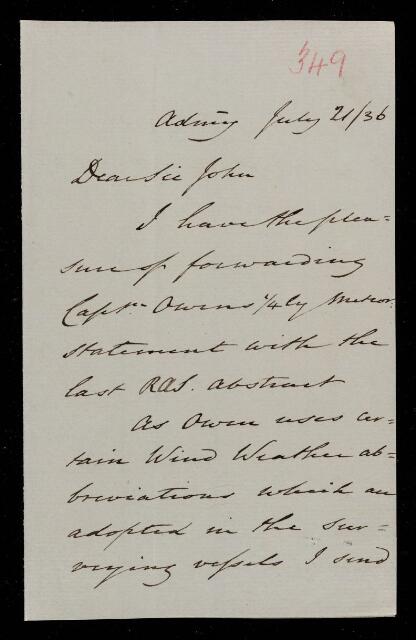 349
Admty July 21/36
Dear Sir John
I have the plea-
sure of forwarding
Captn Owens 1/4ly Meteor:
statement with the
last RAS. abstract
As Owen uses cer-
tain Wind Weather ab-
breviations which are
adopted in the sur-
veying vessels I send